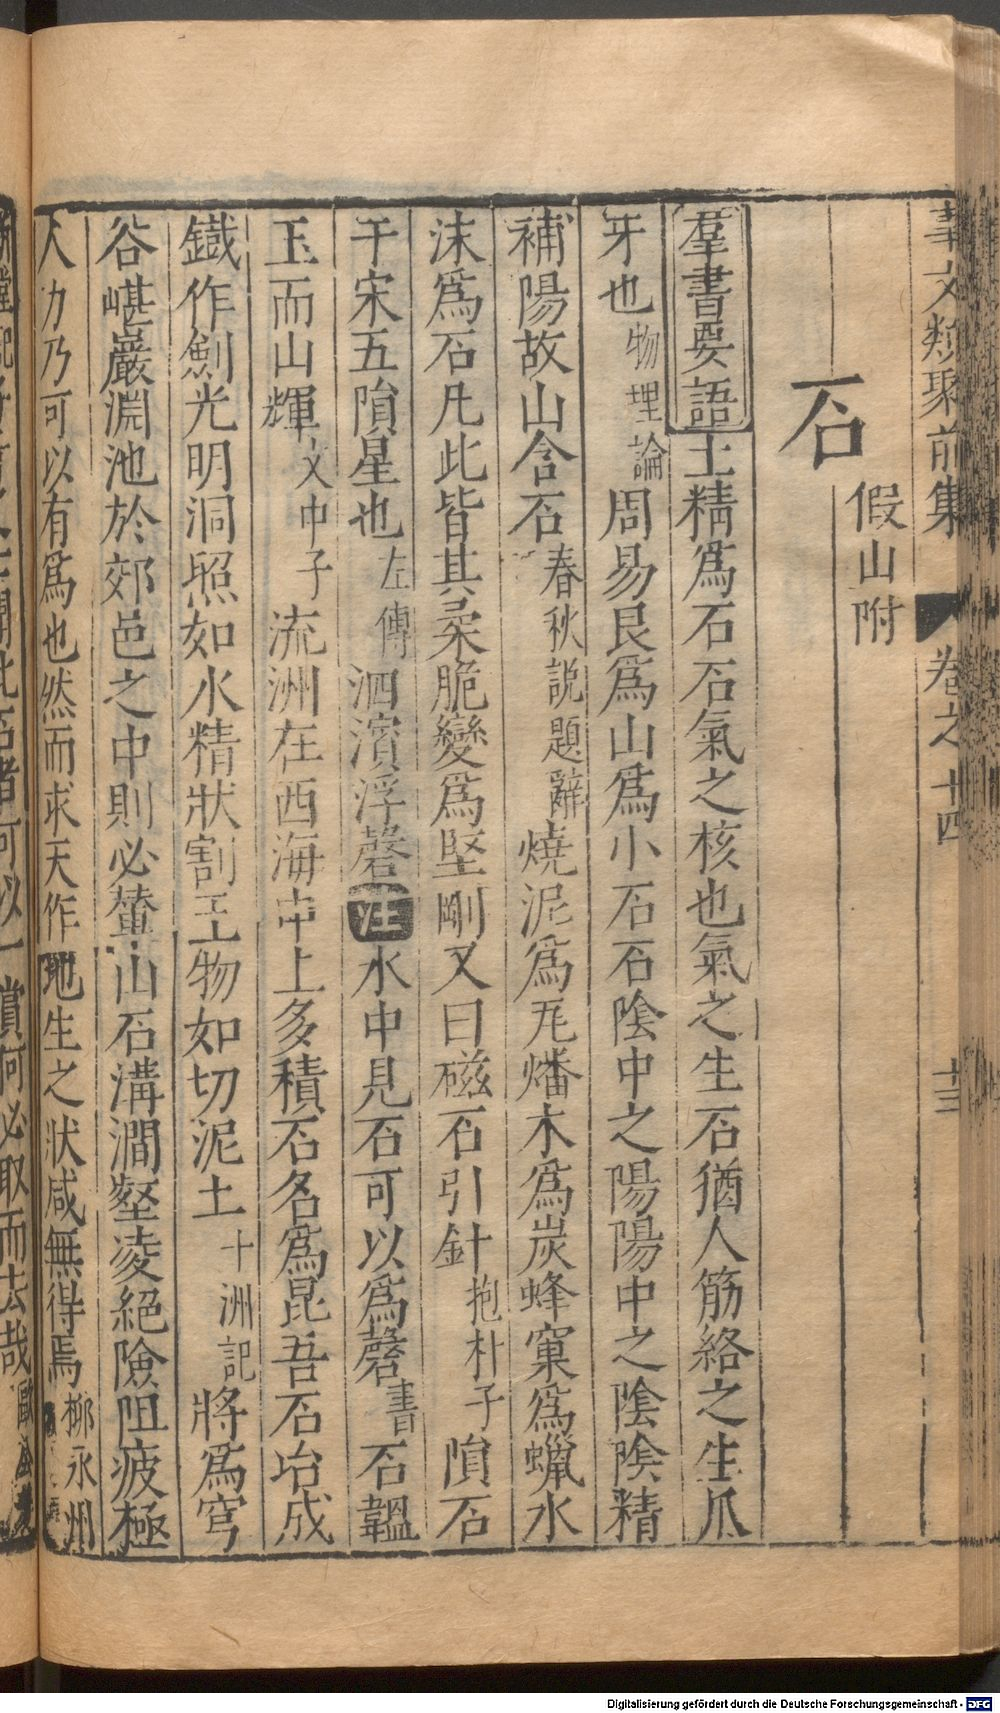 事文類聚前集　卷之十四　十三
石
假山附
羣書要語土精爲石石氣之核也氣之生石猶人筋絡之生爪
牙也物理論周易艮爲山爲小石石陰中之陽陽中之陰陰精
補陽故山含石春秋說題辭燒泥爲瓦燔木爲炭蜂窠爲蠟水
沫爲石凡此皆其柔脆變爲堅剛又曰磁石引針抱朴子隕石
于宋五隕星也左傳泗濱浮磬注水中見石可以爲磬書石韞
玉而山輝文中子流洲在西海中上多積石名爲昆吾石冶成
鐵作劍光明洞照如水精狀割玉物如切泥土十洲記將爲穹
谷嵁巖淵池於郊邑之中則必輦山石溝澗壑凌絕險阻疲極
人力乃可以有爲也然而求天作地生之狀咸無得焉柳永州
聞此石者可以一賞何必取而去哉歐
Digitalisierung gefördert durch die Deutsche Forschungsgemeinschaft - DFG